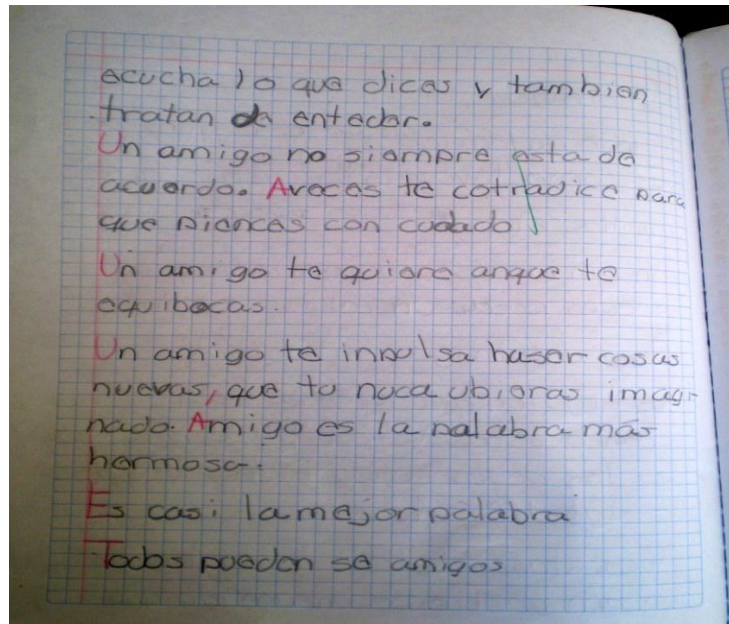 ecucha lo que dices y tambien
tratan de enteder.
Un amigo no siempre esta de
acuerdo. Aveces te cotradice para
que piences con cuadado
Un amigo te quiere anque te
equibocas.
Un amigo te inpulsa haser cosas
nuevas, que tu nuca ubieras imagi-
nado. Amigo es la palabra más
hermosa.
Es casi la mejor palabra
Todos pueden se amigos